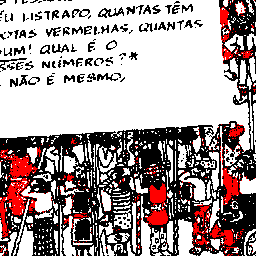 ÉU LISTRADO, QUANTAS TÊM
OTAS VERMELHAS, QUANTAS
UM! QUAL É O
SSES NÚMEROS?*
NÃO É MESMO,